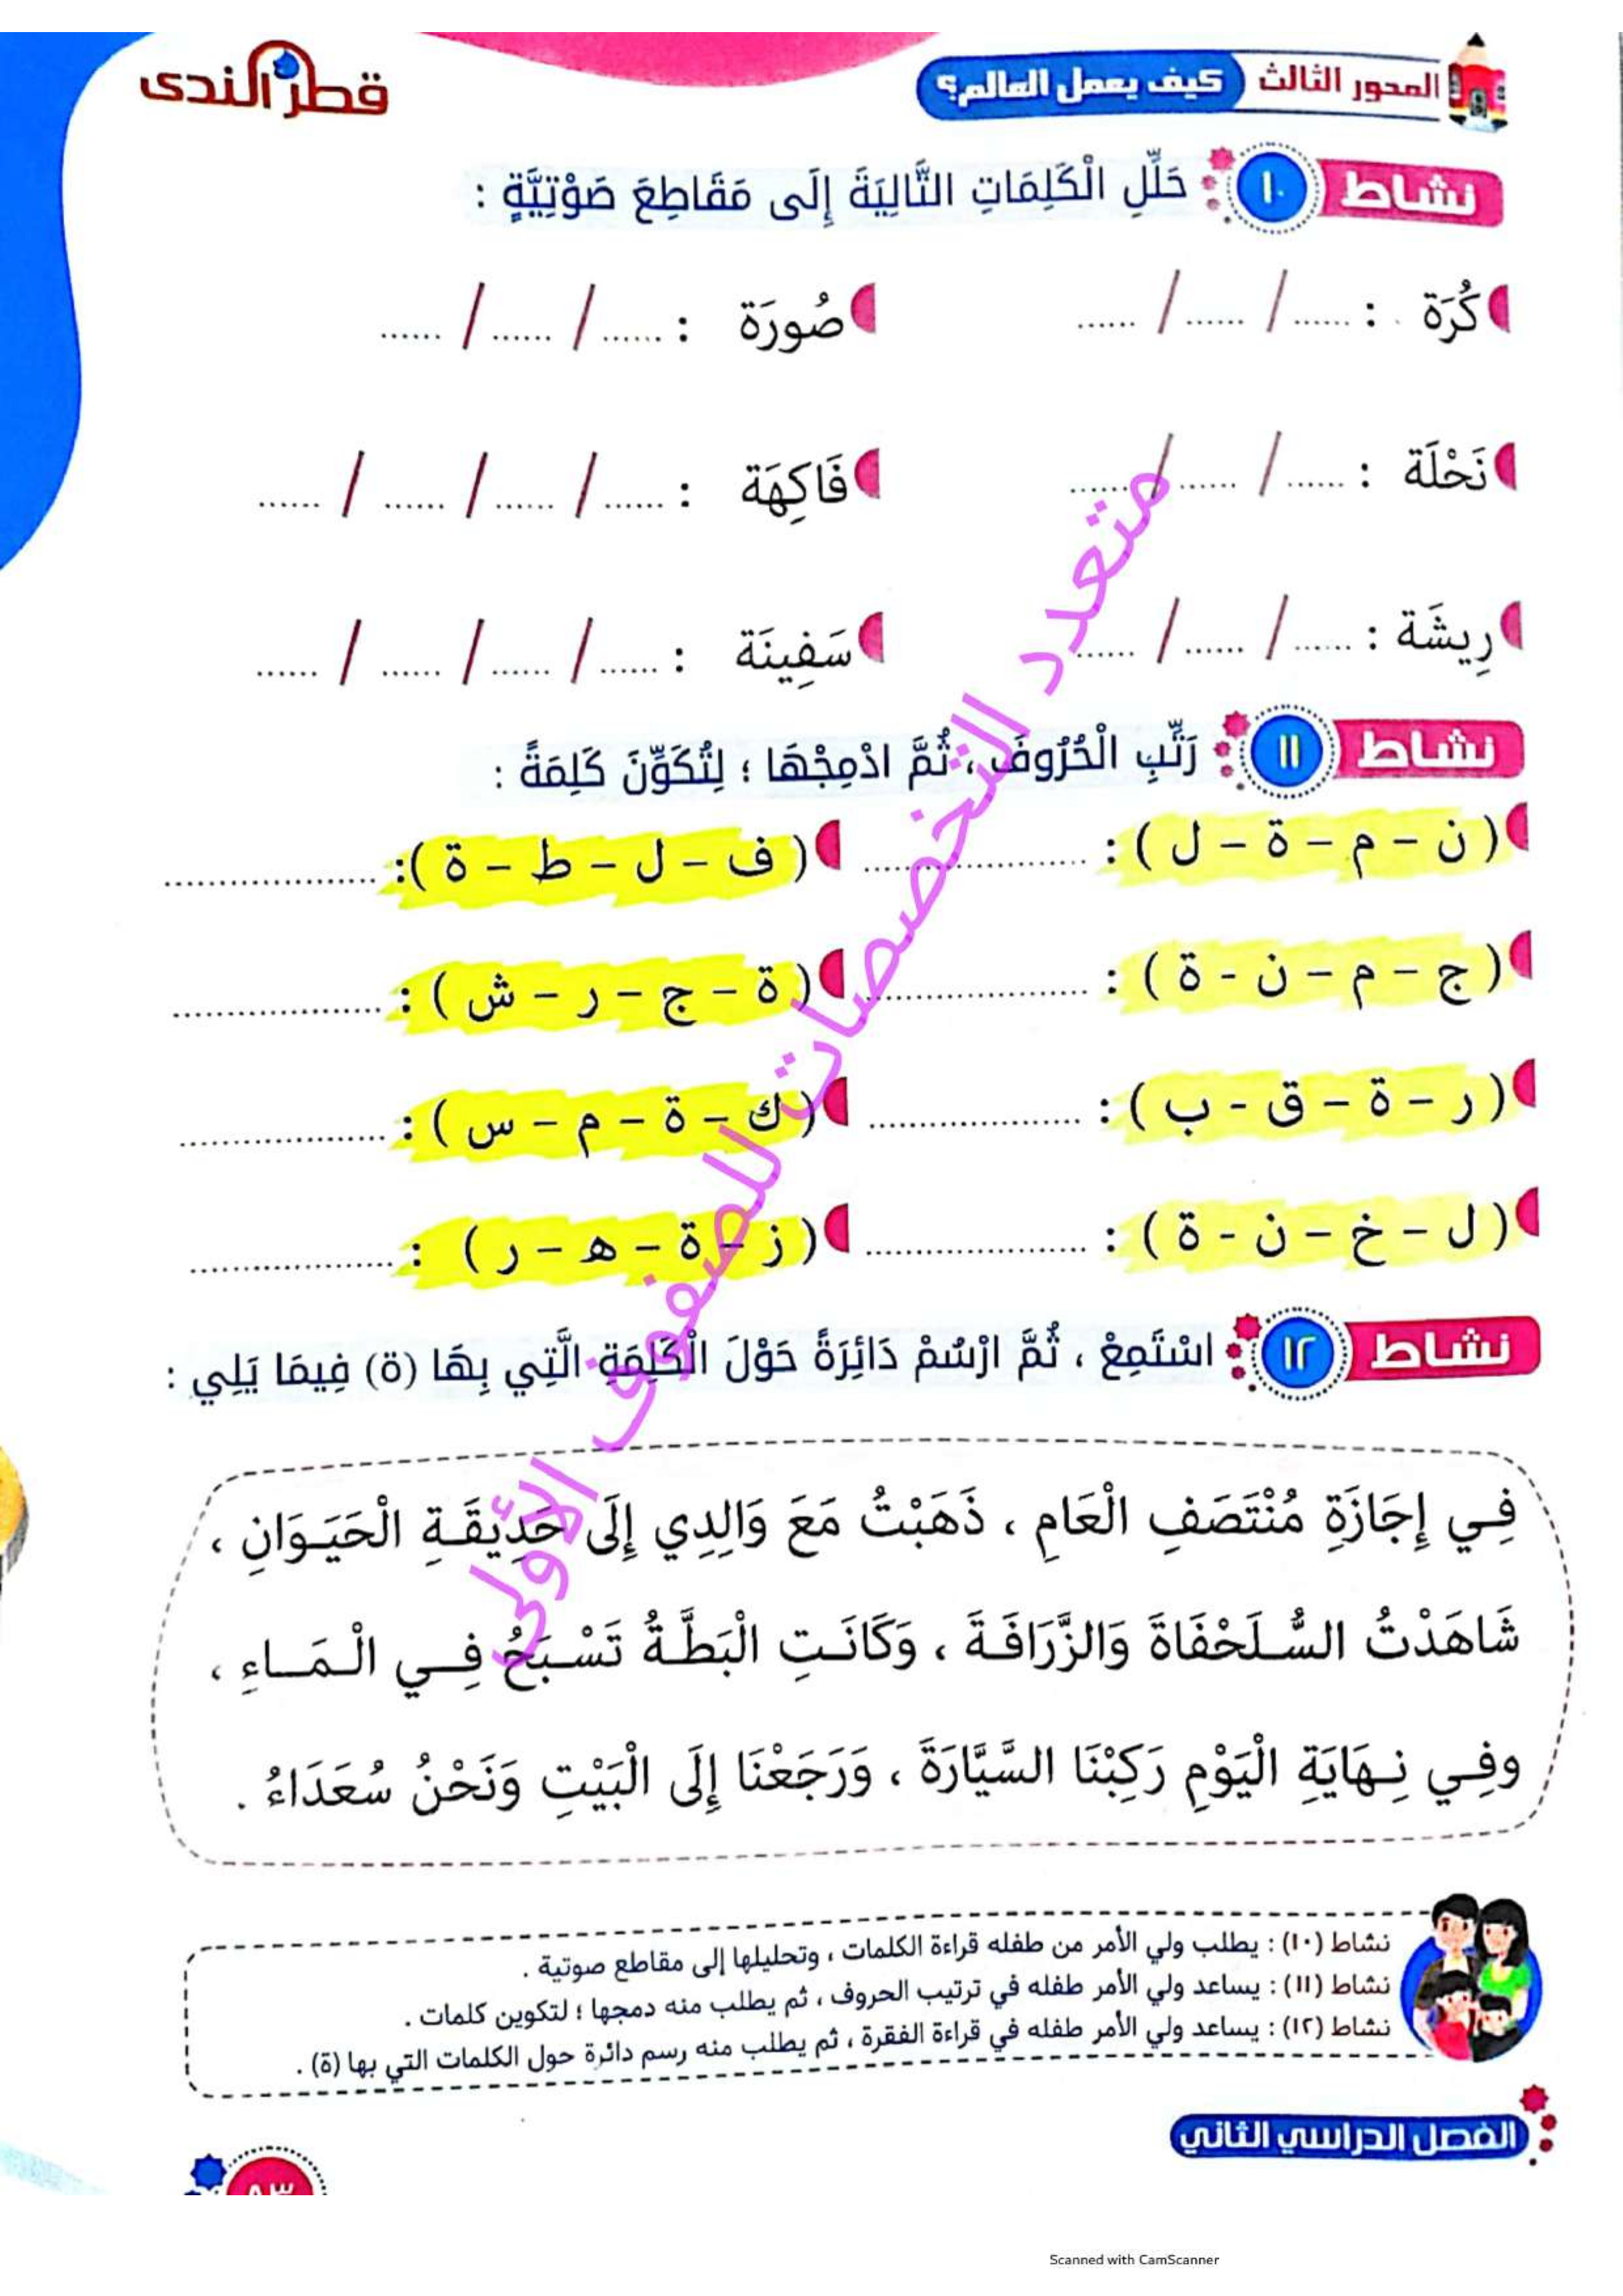 المحور الثالث كيف يعمل العالم؟
قطر الندى
نشاط ١٠ حَلِّلِ الْكَلِمَاتِ التَّالِيَةَ إِلَى مَقَاطِعَ صَوْتِيَّةٍ :
كُرَة : ...... / ...... / ...... صُورَة : ...... / ...... / ......
نَحْلَة : ...... / ...... / ...... فَاكِهَة : ...... / ...... / ...... / ......
رِيشَة : ...... / ...... / ...... سَفِينَة : ...... / ...... / ...... / ......
نشاط ١١ رَتِّبِ الْحُرُوفَ ، ثُمَّ ادْمِجْهَا ؛ لِتُكَوِّنَ كَلِمَةً :
( ن – م – ة – ل ) : ...................... ( ف – ل – ط – ة ): ......................
( ج – م – ن - ة ) : ...................... ( ة – ج – ر – ش ) : ......................
( ر – ة – ق - ب ) : ...................... ( ك – ة – م – س ) : ......................
( ل – خ – ن - ة ) : ...................... ( ز – ة – ه – ر ) : ......................
نشاط ١٢ اسْتَمِعْ ، ثُمَّ ارْسُمْ دَائِرَةً حَوْلَ الْكَلِمَةِ الَّتِي بِهَا (ة) فِيمَا يَلِي :
فِي إِجَازَةِ مُنْتَصَفِ الْعَامِ ، ذَهَبْتُ مَعَ وَالِدِي إِلَى حَدِيقَةِ الْحَيَوَانِ ،
شَاهَدْتُ السُّلَحْفَاةَ وَالزَّرَافَةَ ، وَكَانَتِ الْبَطَّةُ تَسْبَحُ فِي الْمَاءِ ،
وفِي نِهَايَةِ الْيَوْمِ رَكِبْنَا السَّيَّارَةَ ، وَرَجَعْنَا إِلَى الْبَيْتِ وَنَحْنُ سُعَدَاءُ .
متعدد التخصصات للصفوف الأولى
نشاط (١٠) : يطلب ولي الأمر من طفله قراءة الكلمات ، وتحليلها إلى مقاطع صوتية .
نشاط (١١) : يساعد ولي الأمر طفله في ترتيب الحروف ، ثم يطلب منه دمجها ؛ لتكوين كلمات .
نشاط (١٢) : يساعد ولي الأمر طفله في قراءة الفقرة ، ثم يطلب منه رسم دائرة حول الكلمات التي بها (ة) .
الفصل الدراسي الثاني
Scanned with CamScanner